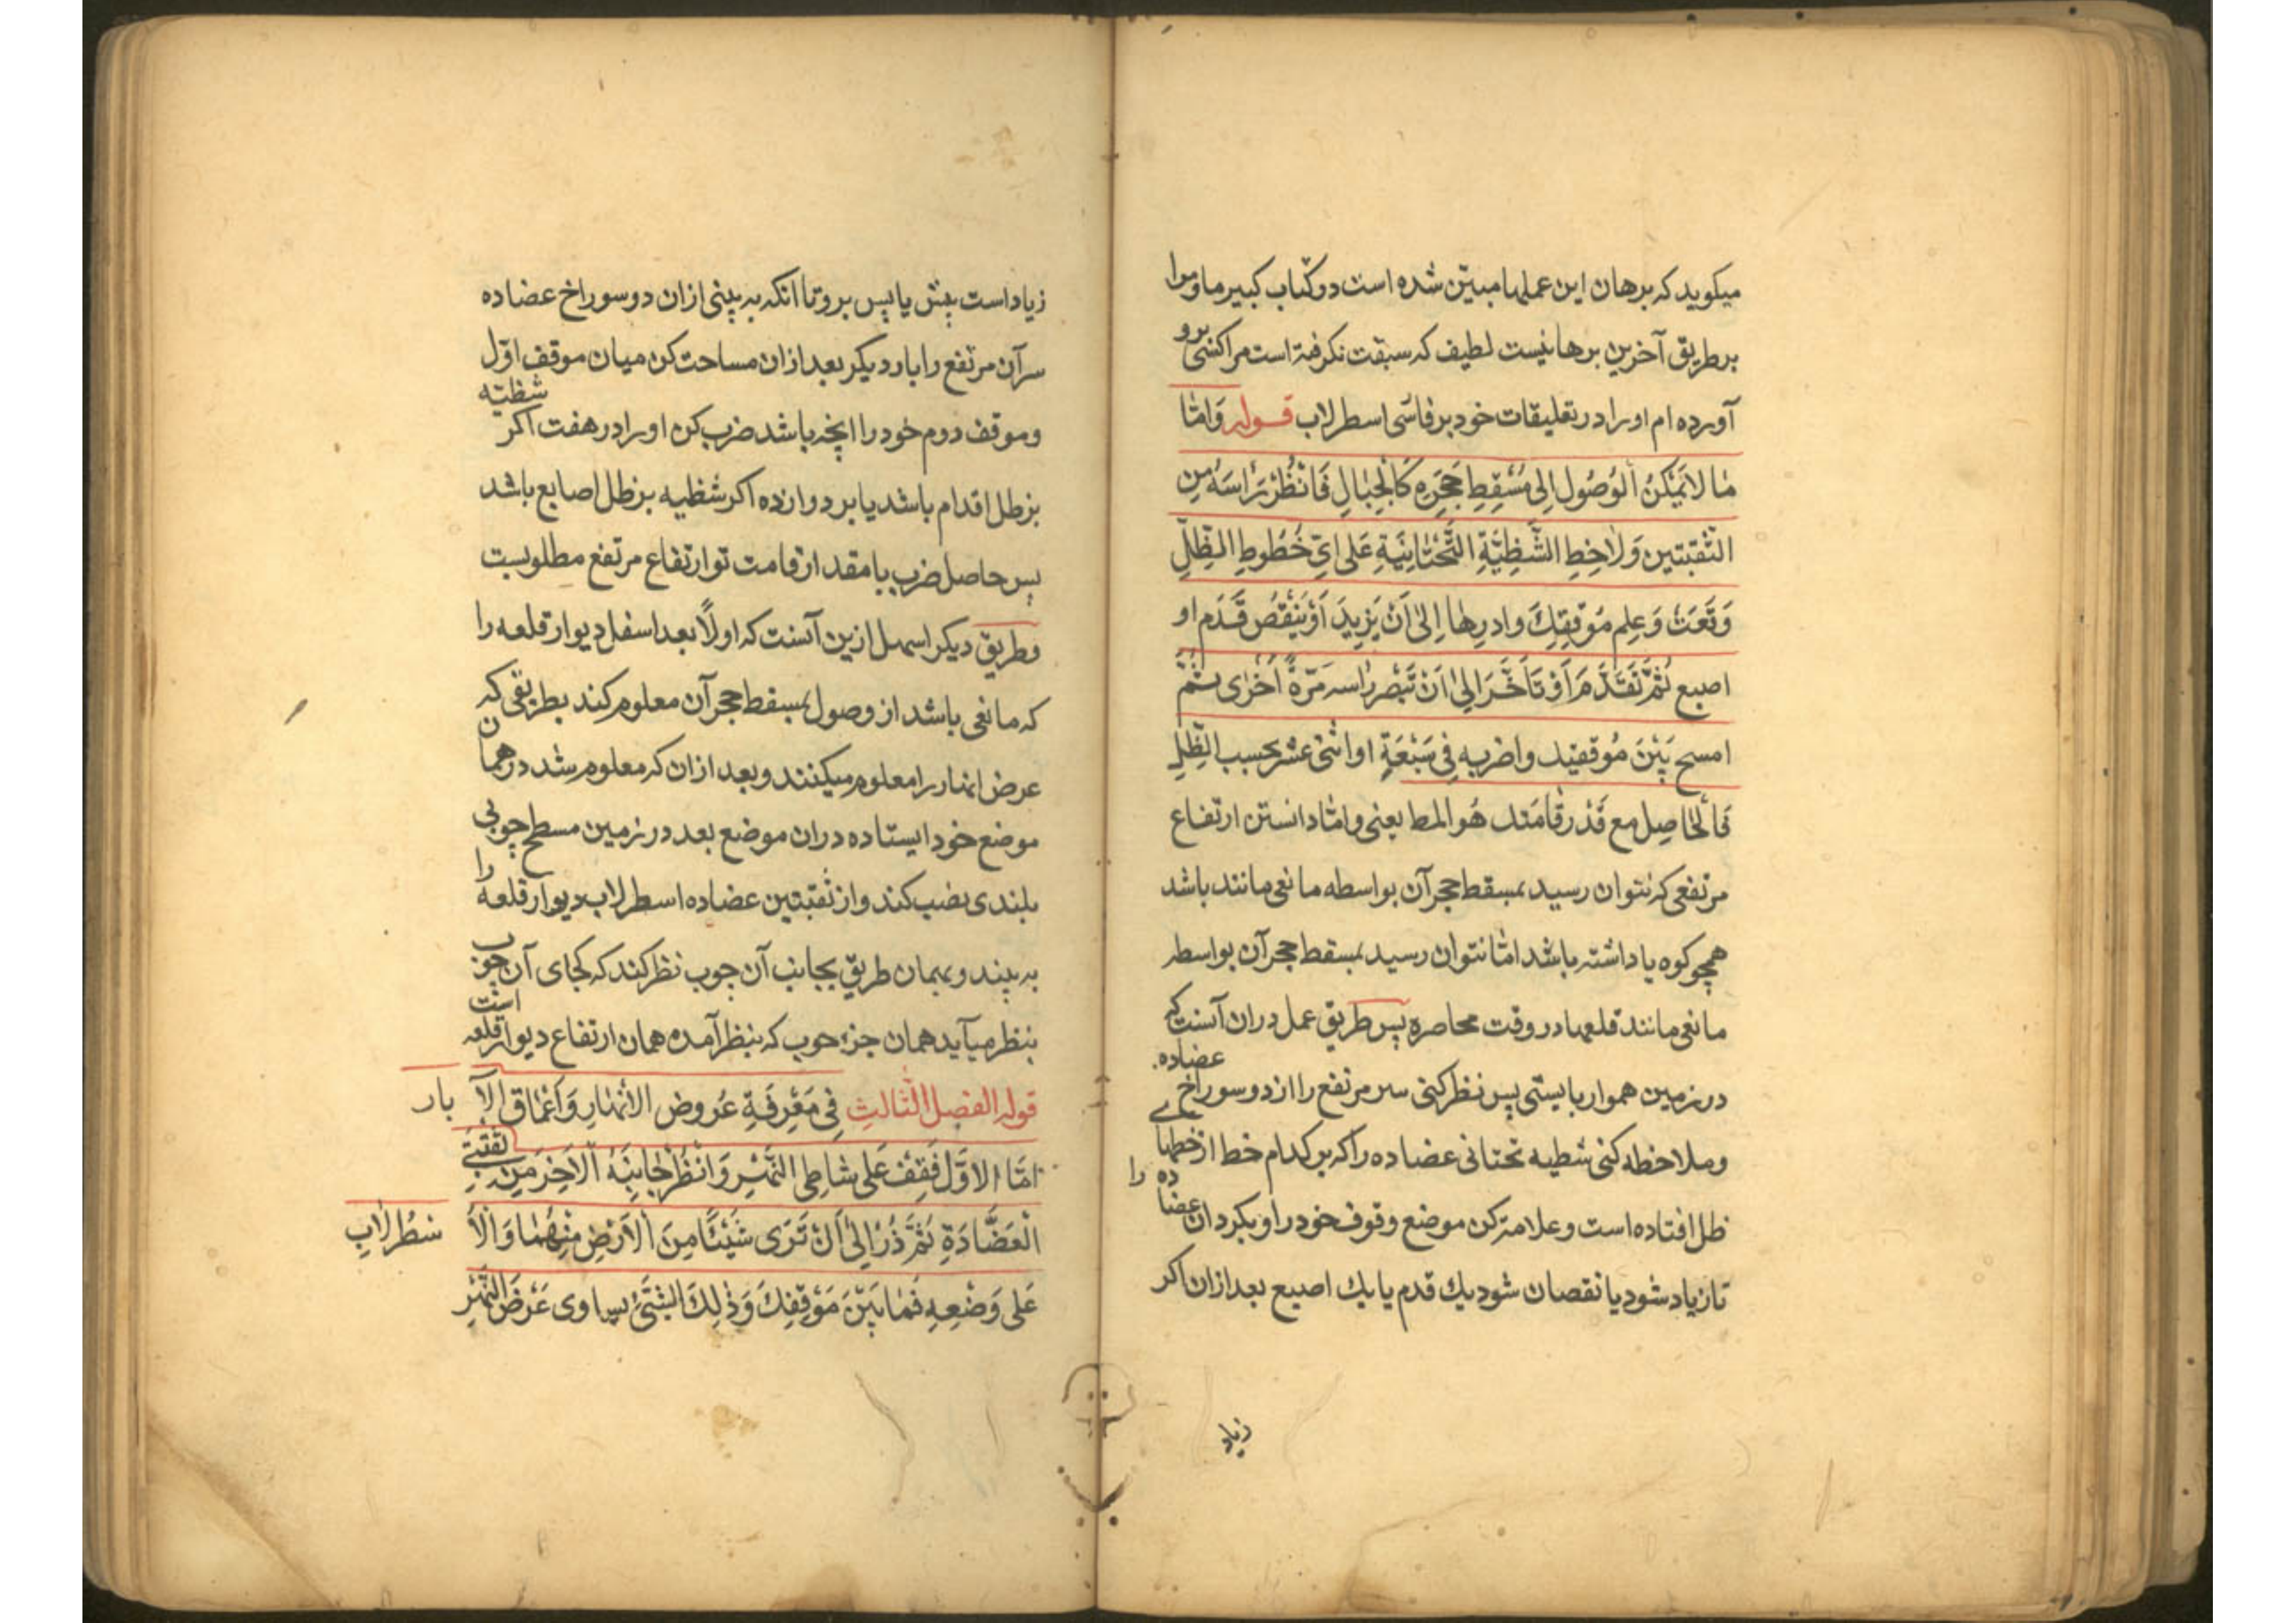 میکوید که برهان این عملها مبیّن شده است در کتاب کبیر ما و مرا
بر طریق آخرین برهانیست لطیف که سبقت نکرفته است مرا کسی برو
آورده ام او را در تعلیقات خود بر فارسی اسطرلاب قوله وَامّا
مٰا لاٰیَمْکِنُ الوُصُول اِلی مَسْقِطِ حَجَرِهِ کَالْجِبٰالِ فَانْظُرْ رَاسَهُ مِن
الثقبتین وَلاٰحِظِ الشَّظِیَّةِ التَّحْتٰانِیَةِ عَلی ایّ خُطُوطِ الظِلِّ
وَقَعَتْ وَعلِم مَوْقِفِكَ وادرها اِلیٰ اَنْ یَزِیدَ اَوْ یَنْقُصَ قَدَم او
اصبع ثُمَّ تَقَدَّمَ اَوْ تَاَخَّرَ اِلیٰ اَنْ تَبْصر راسه مَرّةً اُخْرٰی ثُمَّ
امسح بَیْنَ مَوقفیك واضربه فِی سَبْعَةٍ او اثنی عشر بحسب الظِّلِ
فَالْحٰاصِل مع قَدْر قٰامَتك هُو المط یعنی وامّا دانستن ارتفاع
مرتفعی که نتوان رسید بمسقط حجر آن بواسطه مانعی مانند باشد
همچو کوه یا داشته باشد امّا نتوان رسید بمسقط حجر آن بواسطه
مانعی مانند قلعها در وقت محاصره پس طریق عمل در ان آنست که
در زمین هموار بایستی پس نظر کنی سر مرتفع را از دو سوراخ عضاده
وملاحظه کنی شظیه تحتانی عضاده را که بر کدام خط از خطهای
ظل افتاده است وعلامت کن موضع وقوف خود را و بکردان عضاده را
تا زیاد شود یا نقصان شود یك قدم یا یك اصبع بعد از ان اکر
زیاد
زیاد است پیش یا پس برو تا انکه به بینی از ان دو سوراخ عضاده
سر آن مرتفع را بار دیکر بعد از ان مساحت کن میان موقف اوّل
وموقف دوم خود را انچه باشد ضرب کن او را در هفت اکر شظیّه
بر ظل اقدام باشد یا بر دوازده اکر شظیه بر ظل اصابع باشد
پس حاصل ضرب با مقدار قامت تو ارتفاع مرتفع مطلوبست
وطریق دیکر اسهل ازین آنست که اولاً بعد اسفل دیوار قلعه را
که مانعی باشد از وصول بمسقط حجر آن معلوم کند بطریقی که
عرض انهار را معلوم میکنند وبعد از ان که معلوم شد در همان
موضع خود ایستاده در ان موضع بعد در زمین مسطح چوبی
بلندی نصب کند و از ثقبتین عضاده اسطرلاب دیوار قلعه را
به بیند و بهمان طریق بجانب آن چوب نظر کند که کجای آن چوب
بنظر میآید همان جزء چوب که بنظر آمده همان ارتفاع دیوار قلعه است
قوله الفصل الثّالثِ فِی مَعْرِفَةِ عُروضِ الاَنْهٰارِ وَاَعْمٰاق الاٰ بار
امّا الاَوّل فَقِفْ عَلی شٰاطِی النَّهْرِ وَانْظُرْ جٰانِبَهُ الْاٰخِرَ مِنْ ثقبتی
الْعَضّٰادَةِ ثُمَّ دُرْ اِلیٰ اَنْ تَرَی شَیْئًا مِنَ الْاَرْضِ مِنْهُمٰا وَالْاُ سْطُرْلاٰبِ
عَلی وَضْعِهِ فَمٰا بَیْنَ مَوْقِفِكَ وَذٰلِكَ الشَّئْ یساوی عَرْضَ النَّهْرِ